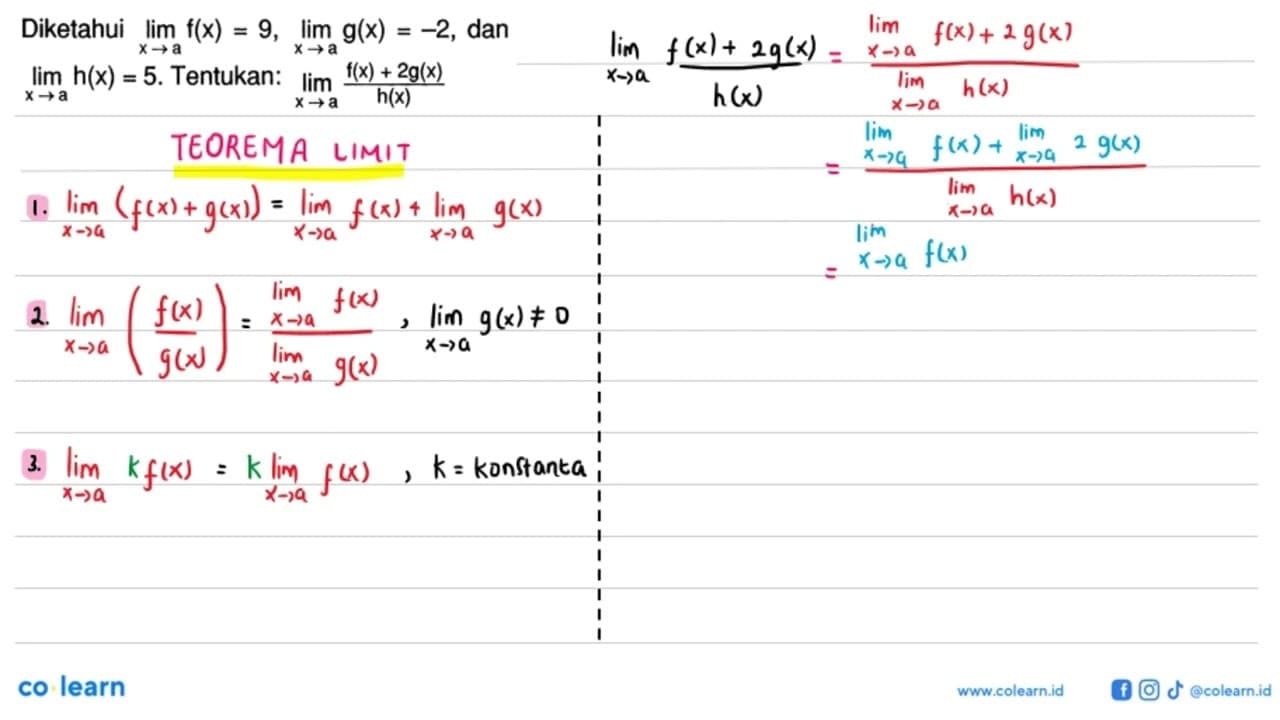 Diketahui lim x→a f(x) = 9, lim x→a g(x) = –2, dan
lim x→a h(x) = 5. Tentukan: lim x→a (f(x) + 2g(x))/h(x)
TEOREMA LIMIT
1. lim x→a (f(x) + g(x)) = lim x→a f(x) + lim x→a g(x)
2. lim x→a (f(x)/g(x)) = lim x→a f(x) / lim x→a g(x) , lim x→a g(x) ≠ 0
3. lim x→a k f(x) = k lim x→a f(x) , k = konstanta
lim x→a (f(x) + 2g(x))/h(x) = lim x→a f(x) + 2 g(x) / lim x→a h(x)
= lim x→a f(x) + lim x→a 2 g(x) / lim x→a h(x)
= lim x→a f(x)
co learn
www.colearn.id
@colearn.id